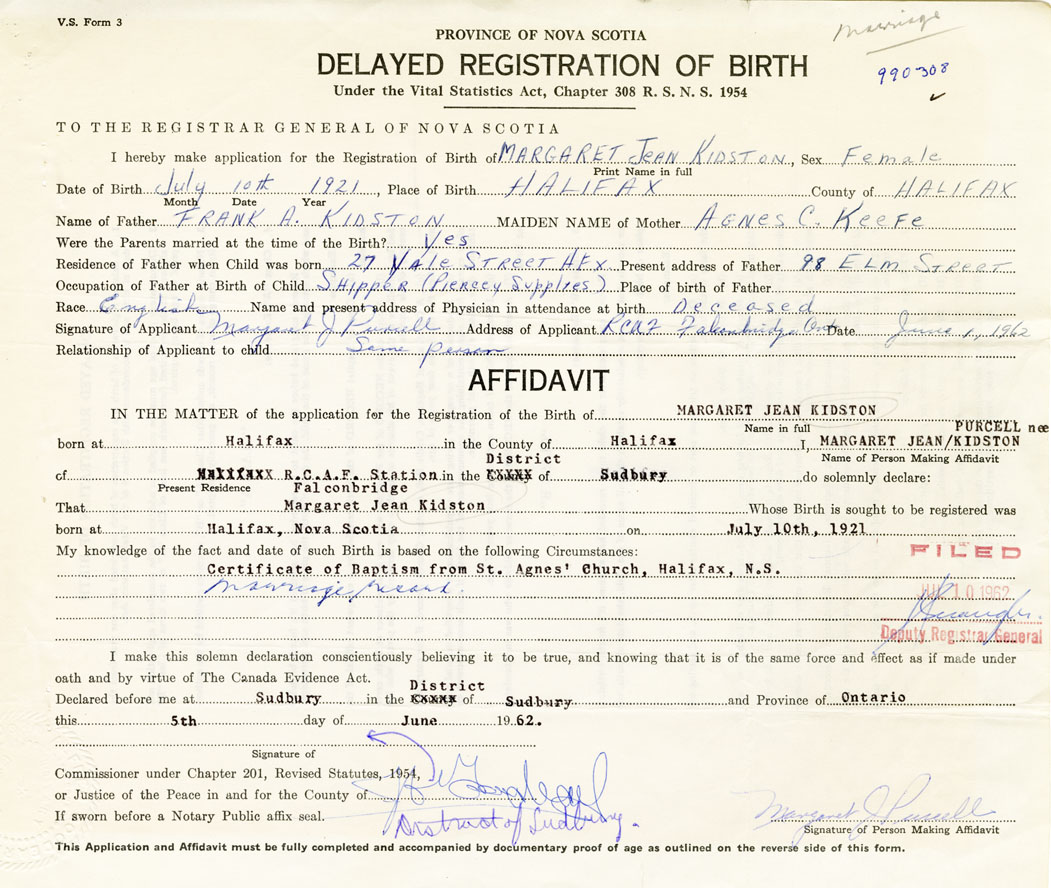 V.S. Form 3
Marriage
PROVINCE OF NOVA SCOTIA
DELAYED REGISTRATION OF BIRTH
990308
Under the Vital Statistics Act, Chapter 308 R. S. N. S. 1954
TO THE REGISTRAR GENERAL OF NOVA SCOTIA
I hereby make application for the Registration of Birth of MARGARET JEAN KIDSTON, Sex Female
Print Name in full
Date of Birth July 10th 1921, Place of Birth HALIFAX County of HALIFAX
Month Date Year
Name of Father FRANK A. KIDSTON MAIDEN NAME of Mother AGNES C. KEEFE
Were the Parents married at the time of the Birth? Yes
Residence of Father when Child was born 27 YALE STREET HFX Present address of Father 98 ELM STREET
Occupation of Father at Birth of Child SHIPPER (PIERCEY SUPPLIES) Place of birth of Father
Race English Name and present address of Physician in attendance at birth Deceased
Signature of Applicant Margaret J Purcell Address of Applicant RCAF Falconbridge Ont Date June 1, 1962
Relationship of Applicant to child Same person
AFFIDAVIT
IN THE MATTER of the application for the Registration of the Birth of MARGARET JEAN KIDSTON
Name in full PURCELL nee
born at Halifax in the County of Halifax I, MARGARET JEAN/KIDSTON
District Name of Person Making Affidavit
of Halifaxx R.C.A.F. Station in the County of Sudbury do solemnly declare:
Present Residence Falconbridge
That Margaret Jean Kidston Whose Birth is sought to be registered was
born at Halifax, Nova Scotia on July 10th, 1921
My knowledge of the fact and date of such Birth is based on the following Circumstances:
FILED
Certificate of Baptism from St. Agnes' Church, Halifax, N.S.
Marriage record.
10 1962
Deputy Registrar General
I make this solemn declaration conscientiously believing it to be true, and knowing that it is of the same force and effect as if made under
oath and by virtue of The Canada Evidence Act.
District
Declared before me at Sudbury in the County of Sudbury and Province of Ontario
this 5th day of June 1962.
Signature of
Commissioner under Chapter 201, Revised Statutes, 1954,
or Justice of the Peace in and for the County of
If sworn before a Notary Public affix seal. District of Sudbury.
Margaret J Purcell
Signature of Person Making Affidavit
This Application and Affidavit must be fully completed and accompanied by documentary proof of age as outlined on the reverse side of this form.